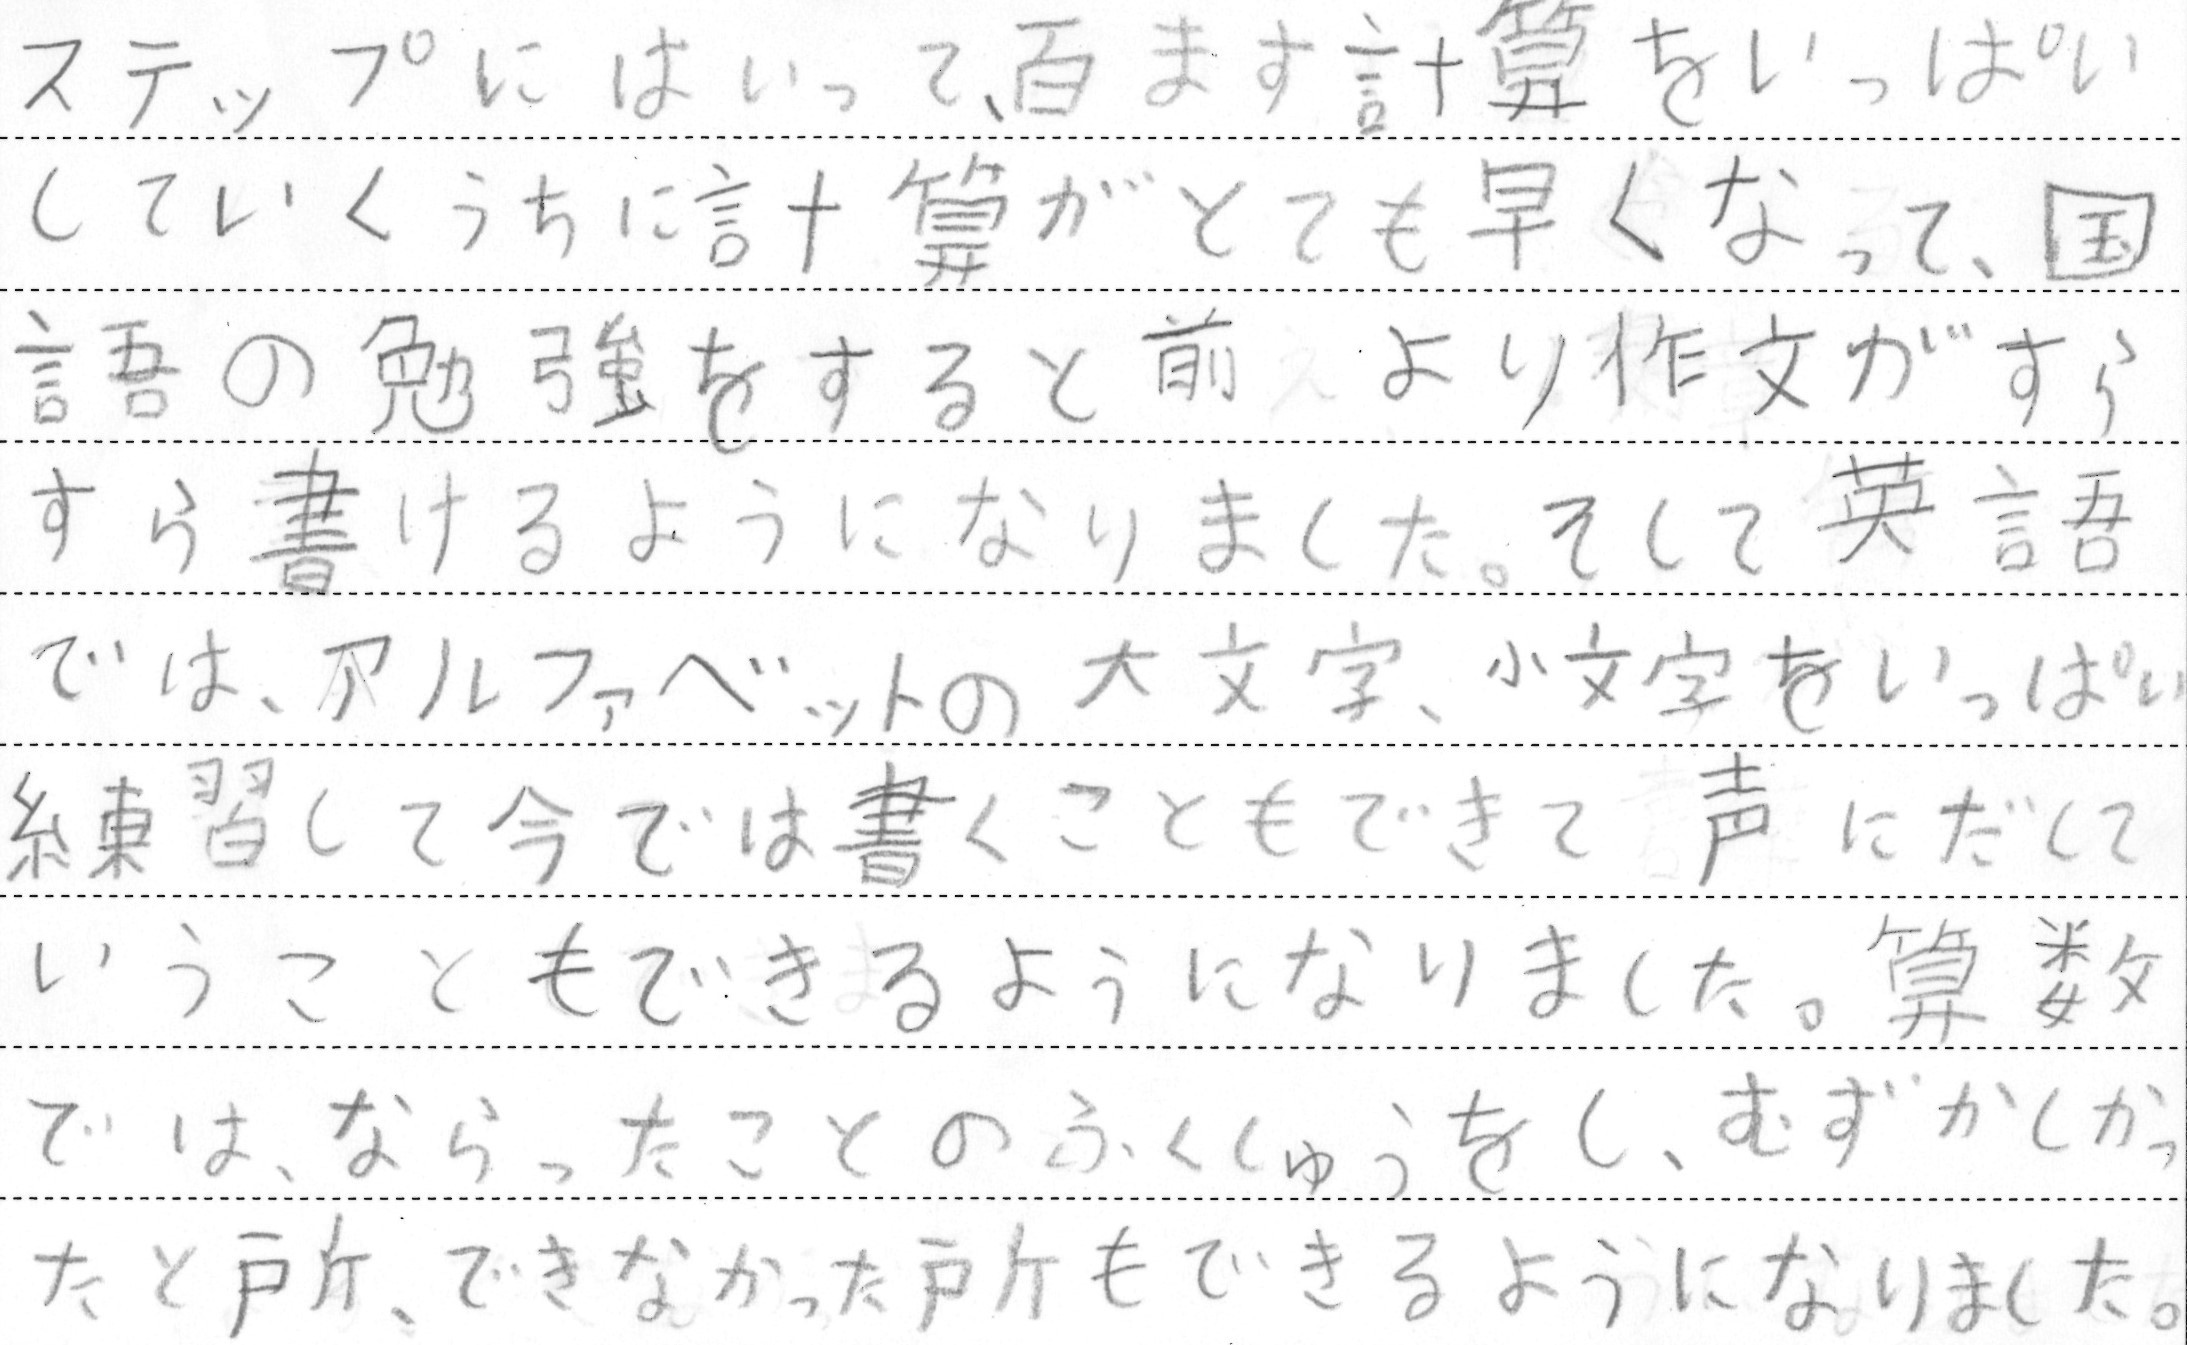 ステップにはいって、百ます計算をいっぱい
していくうちに計算がとても早くなって、国
語の勉強をすると前より作文がすら
すら書けるようになりました。そして英語
では、アルファベットの大文字、小文字をいっぱい
練習して今では書くこともできて声にだして
いうこともできるようになりました。算数
では、ならったことのふくしゅうをし、むずかしかっ
たと所、できなかった所もできるようになりました。